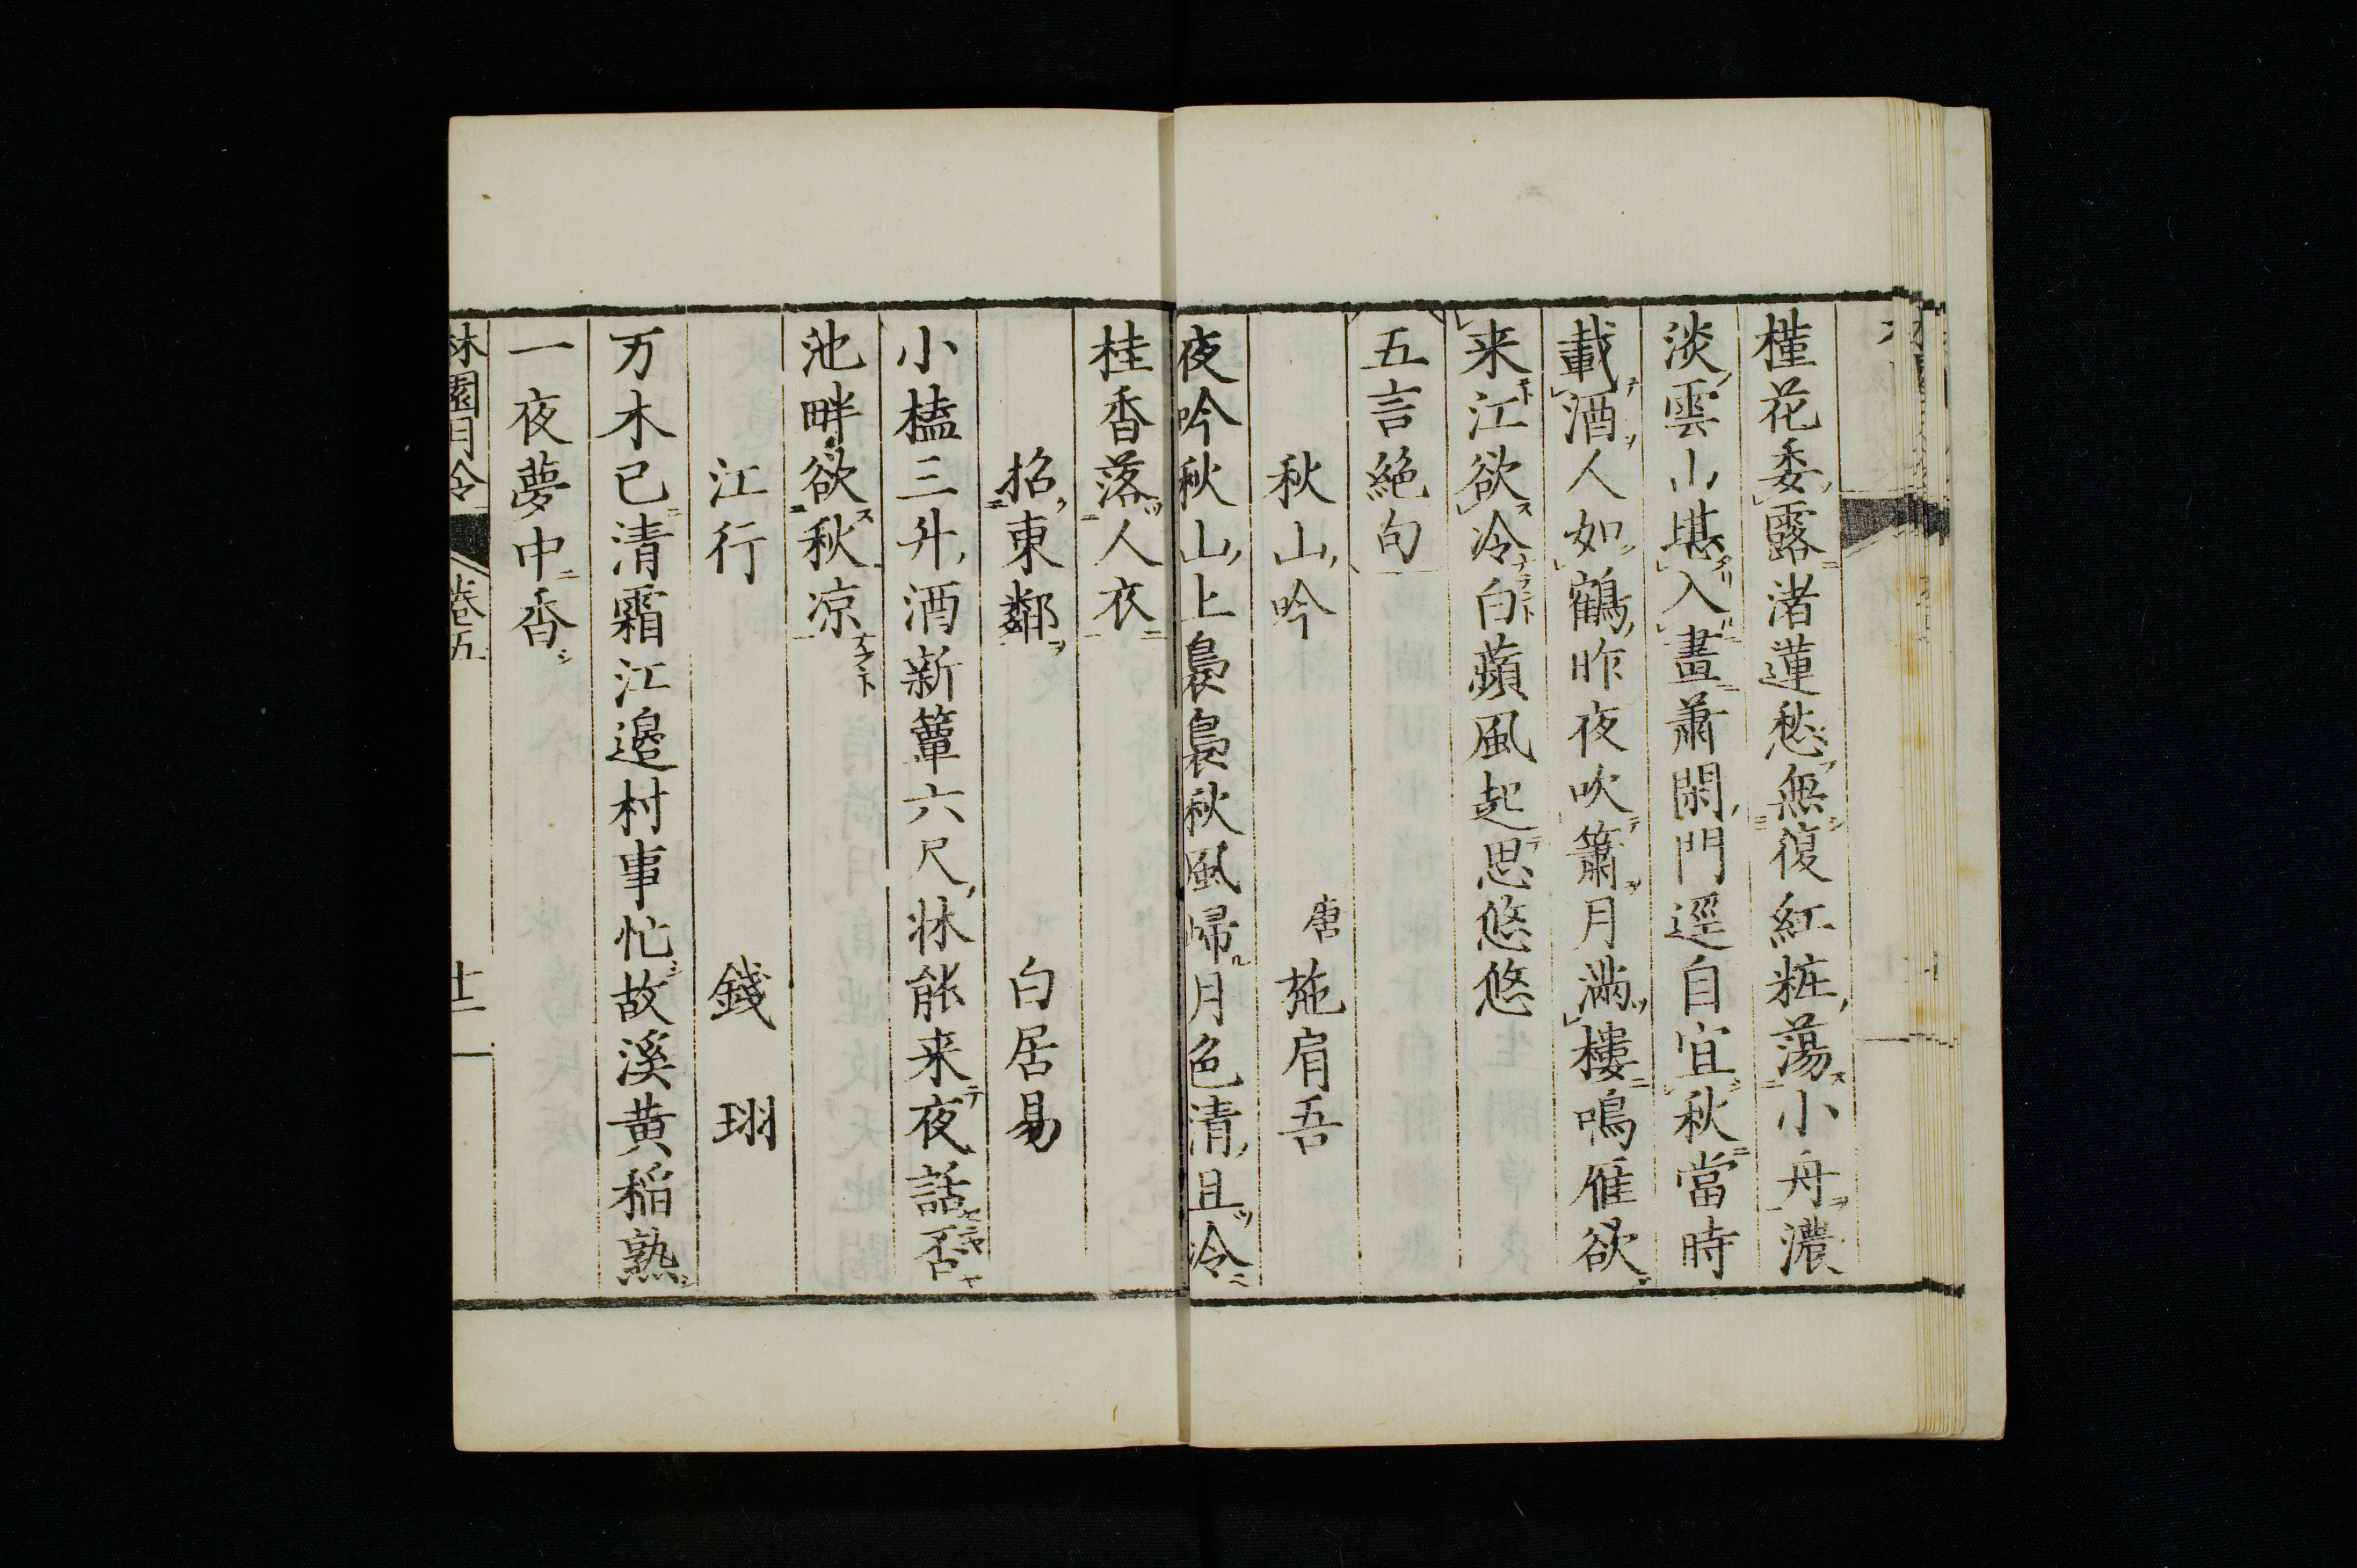 槿花委露渚蓮愁無復紅粧蕩小舟濃
淡雲山堪入畫蕭閑門逕自宜秋當時
載酒人如鶴昨夜吹簫月満樓鳴雁欲
来江欲冷白蘋風起思悠悠
五言絕句
秋山吟 唐 施肩吾
夜吟秋山上裊裊秋風歸月色清且冷
桂香落人衣
招東鄰 白居易
小榼三升酒新簟六尺牀能来夜話否
池畔欲秋凉
江行 錢珝
万木已清霜江邉村事忙故溪黄稻熟
一夜夢中香
林園月令 卷五 十一